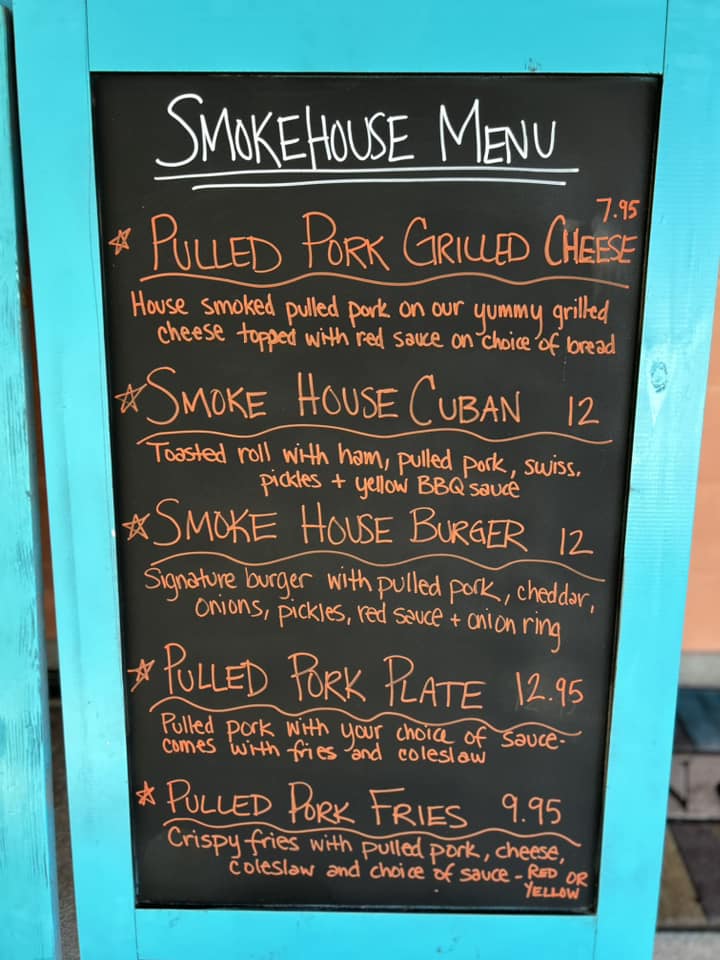 SMOKEHOUSE MENU
7.95
☆ PULLED PORK GRILLED CHEESE
House smoked pulled pork on our yummy grilled
cheese topped with red sauce on choice of bread
☆ SMOKE HOUSE CUBAN 12
Toasted roll with ham, pulled pork, swiss,
pickles + yellow BBQ sauce
☆ SMOKE HOUSE BURGER 12
Signature burger with pulled pork, cheddar,
onions, pickles, red sauce + onion ring
☆ PULLED PORK PLATE 12.95
Pulled pork with your choice of sauce-
comes with fries and coleslaw
☆ PULLED PORK FRIES 9.95
Crispy fries with pulled pork, cheese,
coleslaw and choice of sauce - RED OR
YELLOW